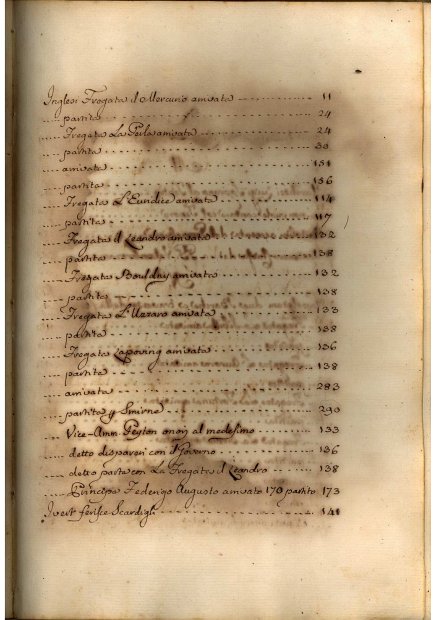 Inglesi Fregata il Mercurio arrivata 11
partita 24
Fregata La Perla arrivata 24
partita 33
arrivata 131
partita 136
Fregata L'Euridice arrivata 114
partita 117
Fregata il Leandro arrivata 132
partita 138
Fregata arrivata 132
partita 138
Fregata arrivata 133
partita 138
Fregata arrivata 136
partita 138
arrivata 283
partita p Smirne 290
Vice-Amm. Peyton onori al medesimo 133
detto con il Governo 136
detto parte con La Fregata il Leandro 138
Principe Federigo Augusto arrivato 170 partito 173
141